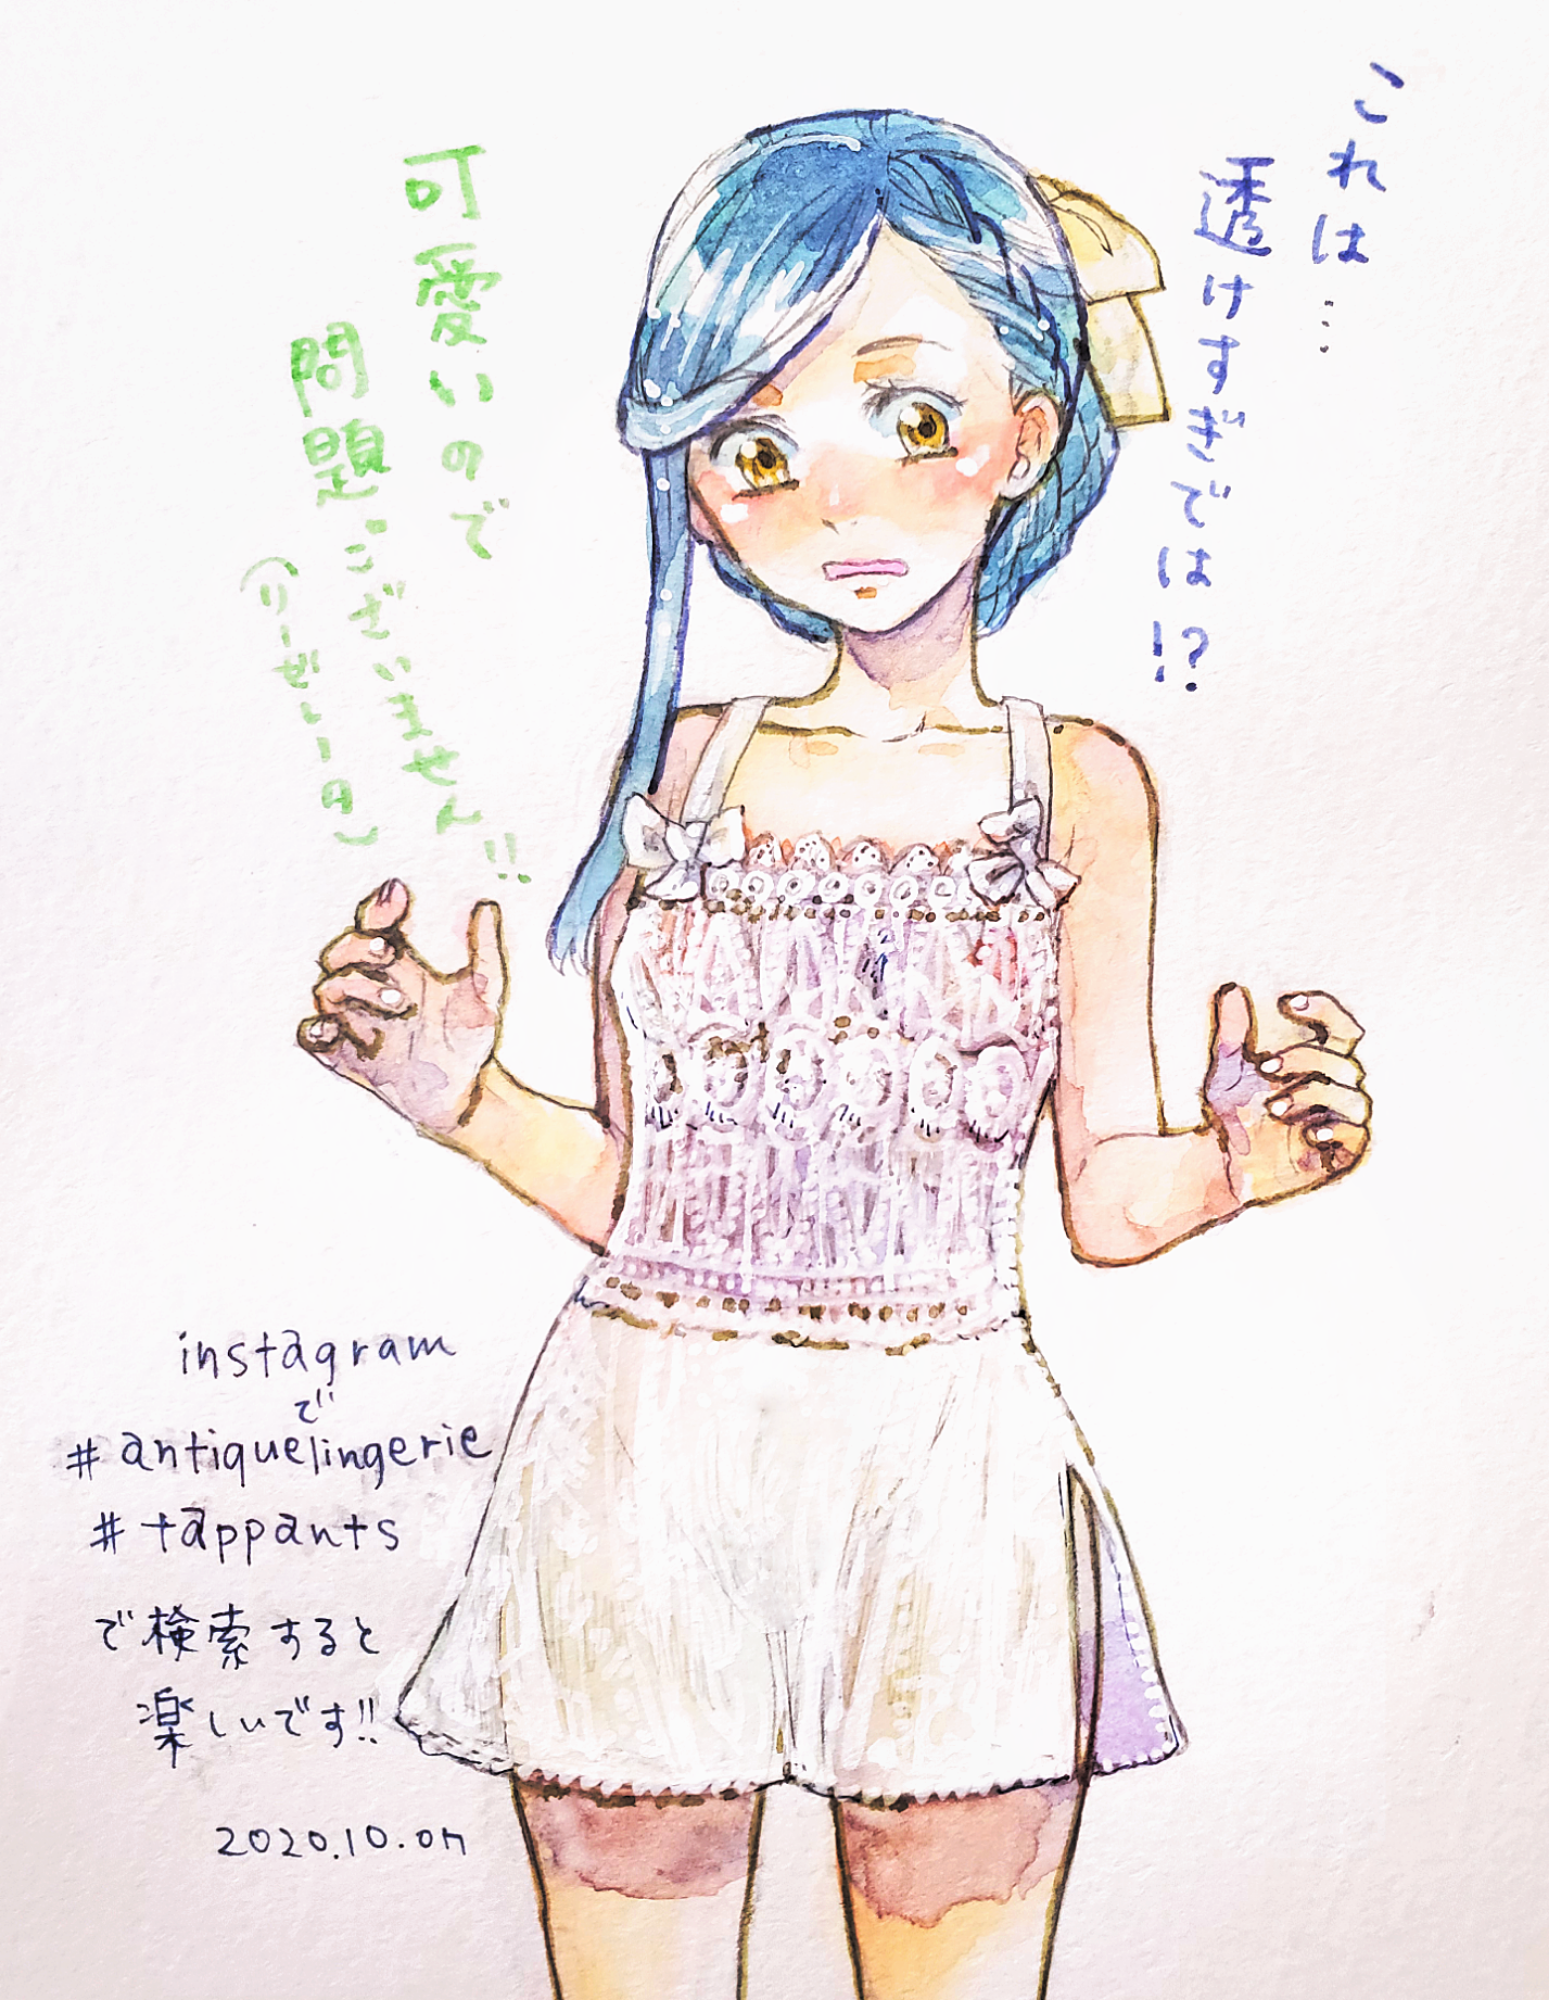 これは…
透けすぎでは!?
可愛いので
問題ございません!!
(リーゼレータ)
instagram
で
#antiquelingerie
#tappants
で検索すると
楽しいです!!
2020.10.07